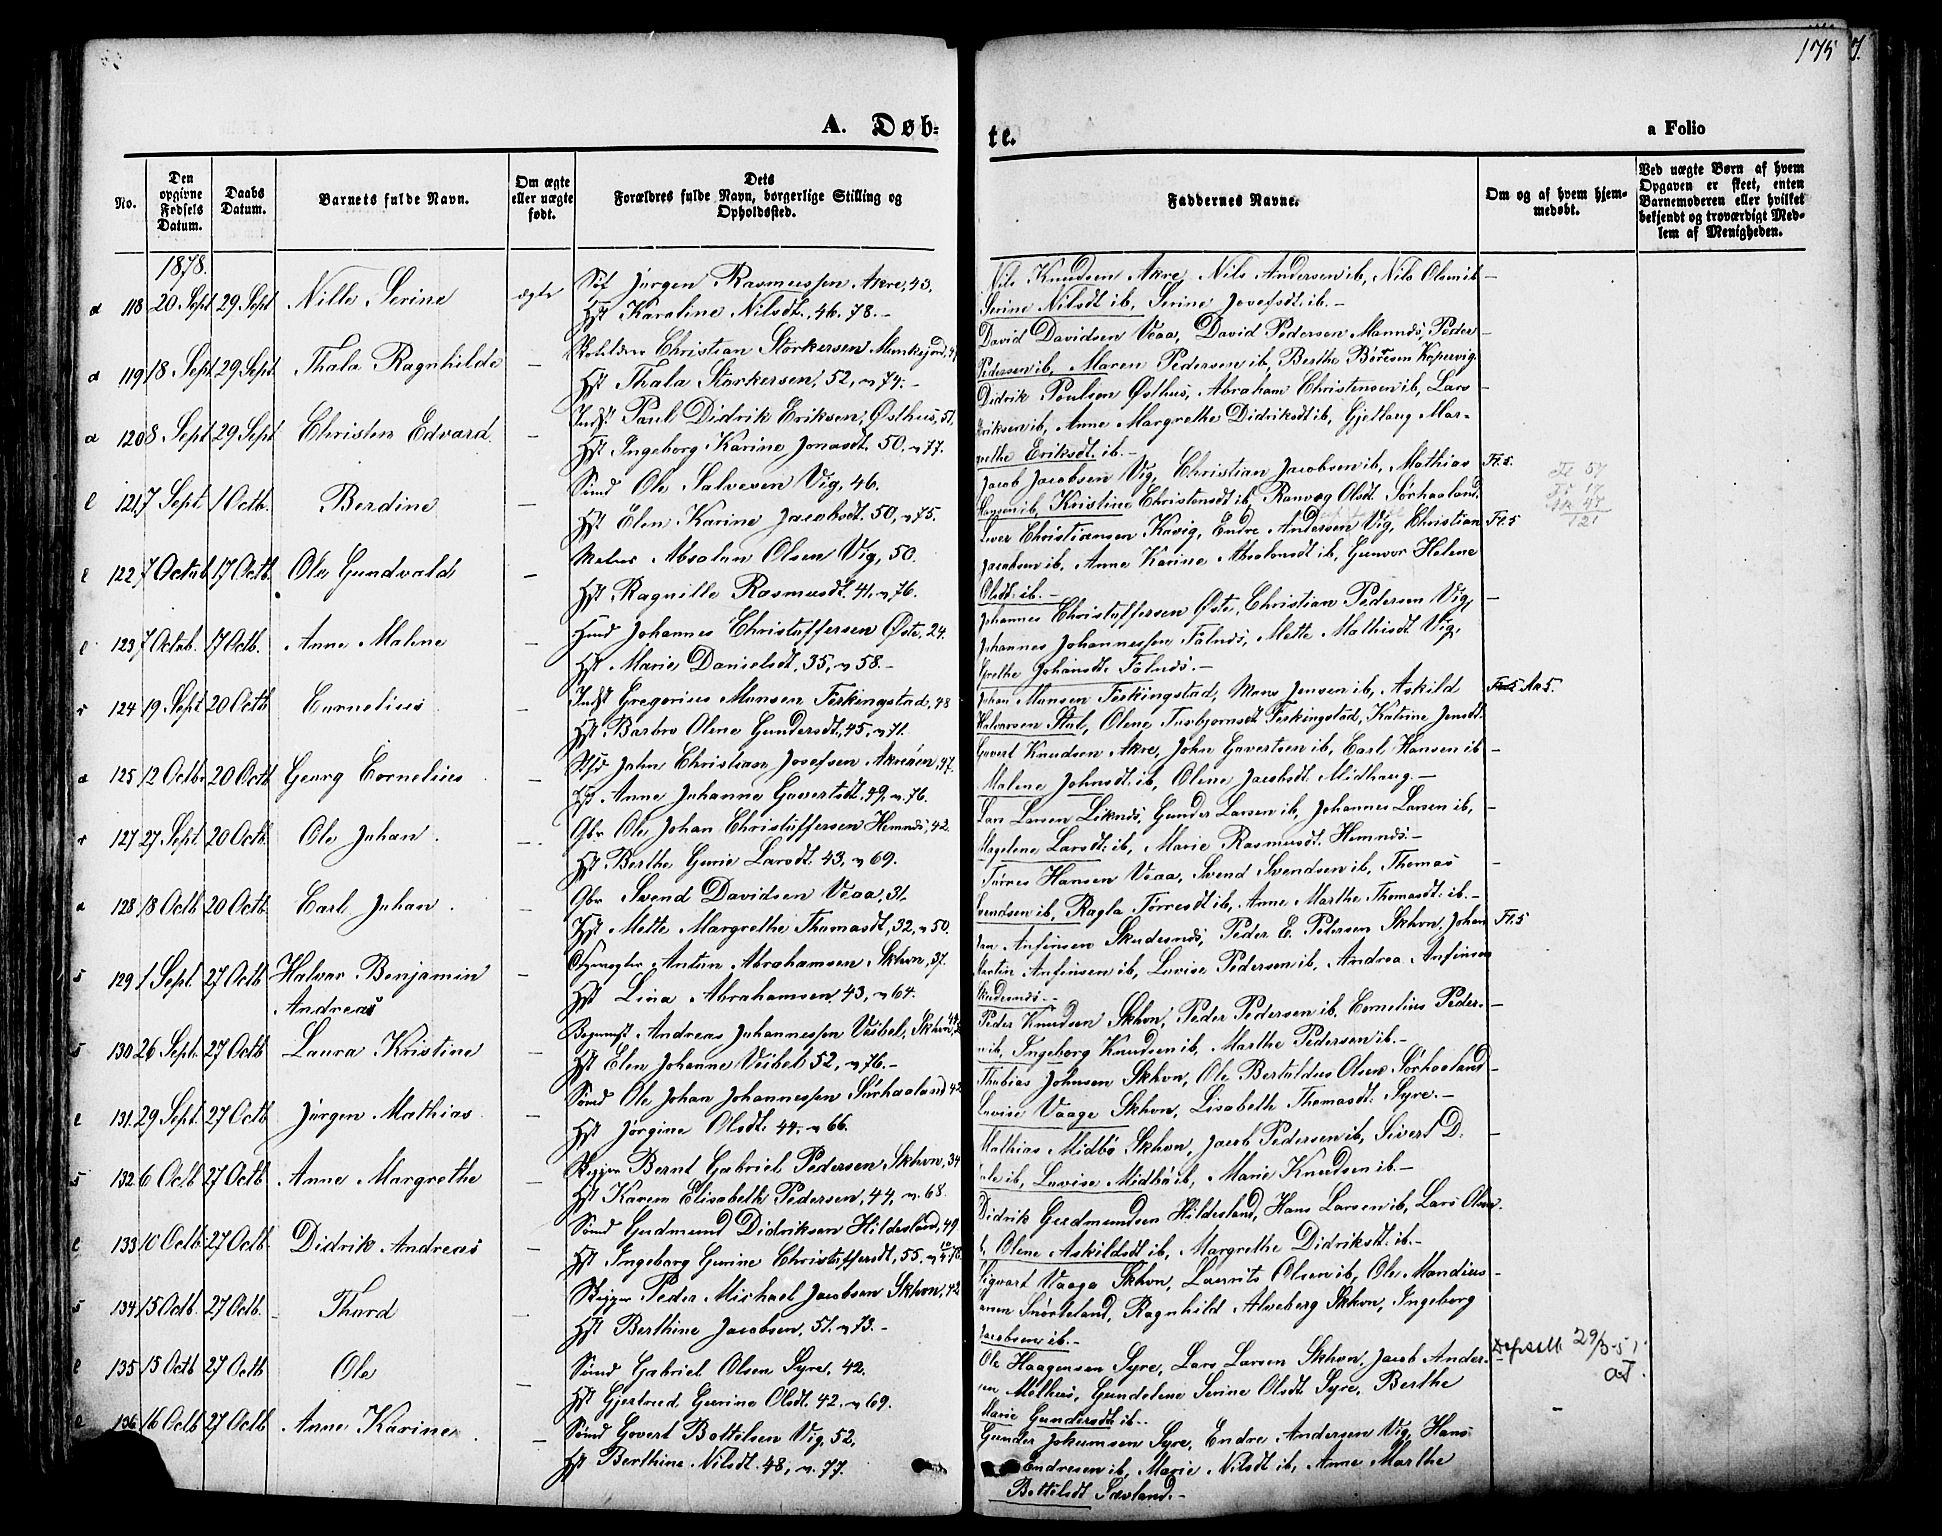 175
7.
A. Døb=
te.
a Folio
No.
Den opgivne Fødsels Datum.
Daabs Datum.
Barnets fulde Navn.
Om ægte eller uægte født.
Dets Forældres fulde Navn, borgerlige Stilling og Opholdssted.
Faddernes Navne.
Om og af hvem hjemmedøbt.
Ved uægte Børn af hvem Opgaven er skeet, enten Barnemoderen eller hvilket bekjendt og troværdigt Medlem af Menigheden.
1878.
a 118 20 Sept 29 Sept Nille Serine ægte
Jørgen Rasmussen Akre, 43.
Hst Karoline Nilsdt., 46. 78. -
Nils Knudsen Akre, Nils Andersen ib, Nils Olsen ib -
Serine Nilsdt ib, Serine Josefsdt. ib. -
a 119 18 Sept 29 Sept. Thala Ragnhilde -
Christian Storkersen Munkejord,
Hst Thala Storkersen, 52, n 74. -
David Davidsen Veaa, David Pedersen Mannæs, Peder -
Pedersen ib, Maren Pedersen ib, Berthe Børesen Kopervig.
a 120 8 Sept 29 Sept Christen Edvard. -
Indst Paul Didrik Eriksen, Østhus, 51,
Hst Ingeborg Karine Jonasdt. 50, n 77.
Didrik Poulsen Østhus, Abraham Christensen ib, Lars -
Eriksen ib, Anne Margrethe Didriksdt ib, Gjetlaug Mar-
grethe Eriksdt. ib. -
e 121 7 Sept 1 Octb. Berdine -
Ole Salvesen Vig, 46.
Hst Elen Karine Jacobsdt. 50, n 75.
Jacob Jacobsen Vig, Christian Jacobsen ib, Mathias Ft. 5.
Hansen ib, Kristine Christensdt ib, Ranveg Olsdt. Sørhaaland.
e 122 7 Octob 17 Octb. Ole Gundvald -
Absalon Olsen Vig, 50.
Hst Ragnille Rasmusdt. 41, n 76.
Iver Christiansen Kavig, Endre Andersen Vig, Christian Ft. 5
Jacobsen ib, Anne Karine Absalonsdt ib, Gunvor Helene
Olsdt. ib. -
e 123 7 Octob. 17 Octb. Anne Malene -
Johannes Christoffersen Øste, 24.
Hst Marie Danielsdt, 35, n 58. -
Johannes Christoffersen Øste, Christian Pedersen Vig, -
Johannes Johannessen Falnæs, Mette Mathisdt Vig,
Grethe Johansdt. Falnæs. -
r 124 19 Sept 20 Octb Cornelius -
Indst Gregorius Monsen Ferkingstad, 48
Hst Barbro Olene Gundersdt, 45, n 71.
Johan Monsen Ferkingstad, Mons Jensen ib, Askild
Halvorsen Stol, Olene Torbjornsdt Ferkingstad, Katrine Jensdt.
a 125 12 Octbr 20 Octb Georg Cornelius -
John Christian Josefsen Akreøen, 47.
Hst Anne Johanne Govertsdt. 49, n. 76.
Govert Knudsen Akre, John Govertsen ib, Carl Hansen ib -
Malene Johnsdt. ib, Olene Jacobsdt. Midhaug. -
r 127 27 Sept. 20 Octb. Ole Johan. -
Gbr Ole Johan Christoffersen Hemnæs, 42.
Hst Berthe Gurie Larsdt. 43, n 69.
Lars Larsen Liknæs, Gunder Larsen ib, Johannes Larsen ib, -
Magelene Larsdt. ib, Marie Rasmusdt. Hemnæs. -
a 128 18 Octb 20 Octb. Carl Johan. -
Gbr Svend Davidsen Veaa, 31.
Hst Mette Margrethe Thomasdt, 32, n 50.
Tørres Hansen Veaa, Svend Svendsen ib, Thomas -
Svendsen ib, Ragla Tørresdt ib, Anne Marthe Thomasdt. ib. -
s 129 1 Sept. 27 Octb Halvor Benjamin -
Andreas
Anton Abrahamsen Skhvn, 37.
Hst Lina Abrahamsen, 43, n 64.
Anfinsen Skudesnæs, Peder E. Petersen Skhvn, Johan Ft. 5
Martin Anfinsen ib, Lovise Pedersen ib, Andrea Anfinsen
Skudesnæs. -
s 130 26 Sept. 27 Octb. Laura Kristine -
Andreas Johannessen Veibel, Skhvn,
Hst Elen Johanne Veibel 52, n 76. -
Peder Knudsen Skhvn, Peder Pedersen ib, Cornelius Peder- -
sen ib, Ingeborg Knudsen ib, Marthe Pedersen ib. -
e 131. 29 Sept. 27 Octb. Jørgen Mathias -
Ole Johan Johannessen Sørhaaland, 42
Hst Jørgine Olsdt. 44. n 66.
Thobias Johnsen Skhvn, Ole Bertuldus Olsen Sørhaaland -
Lovise Vaage Skhvn, Lisabeth Thomasdt. Syre. -
s 132 6 Octb 27 Octb Anne Margrethe -
Bernt Gabriel Pedersen, Skhvn, 34
Hst Karen Elisabeth Pedersen, 44, n. 68.
Mathias Midbø Skhvn, Jacob Pedersen ib, Sivert D. -
ib, Lovise Midbø ib, Marie Knudsen ib. -
e 133 10 Octb 27 Octb. Didrik Andreas -
Gudmund Didriksen Hildesland, 49
Hst Ingeborg Gurine Christoffersdt, 55.
Didrik Gudmundsen Hildesland, Hans Larsen ib, Lars Olsen.
Olene Askildsdt ib, Margrethe Didriksdt. ib. -
s 134 15 Octb. 27 Octb. Thord -
Peder Michael Jacobsen Skhvn, 42
Hst Berthine Jacobsen, 51. n 73. -
Sigvart Vaage Skhvn, Laurits Olsen ib, Ole Mandius -
Snorteland, Ragnhild Alveberg Skhvn, Ingeborg
Jacobsen ib. -
e 135 15 Octb 27 Octb Ole -
Gabriel Olsen Syre, 42.
Hst Gjertrud Gurine Olsdt. 42. n 69.
Ole Haagensen Syre, Lars Larsen Skhvn, Jacob Ander-
sen Mølhus, Gundelene Serine Olsdt. Syre, Berthe
Marie Gundersdt ib. -
29/3-51
e 136 16 Octb 27 Octb. Anne Karine. -
Govert Bottelsen Vig, 52,
Hst Berthine Nilsdt. 48, n. 77.
Gunder Jokumsen Syre, Endre Andersen Vig, Hans -
Endresen ib, Marie Nilsdt ib, Anne Marthe
Bottelsdt Sævland. -